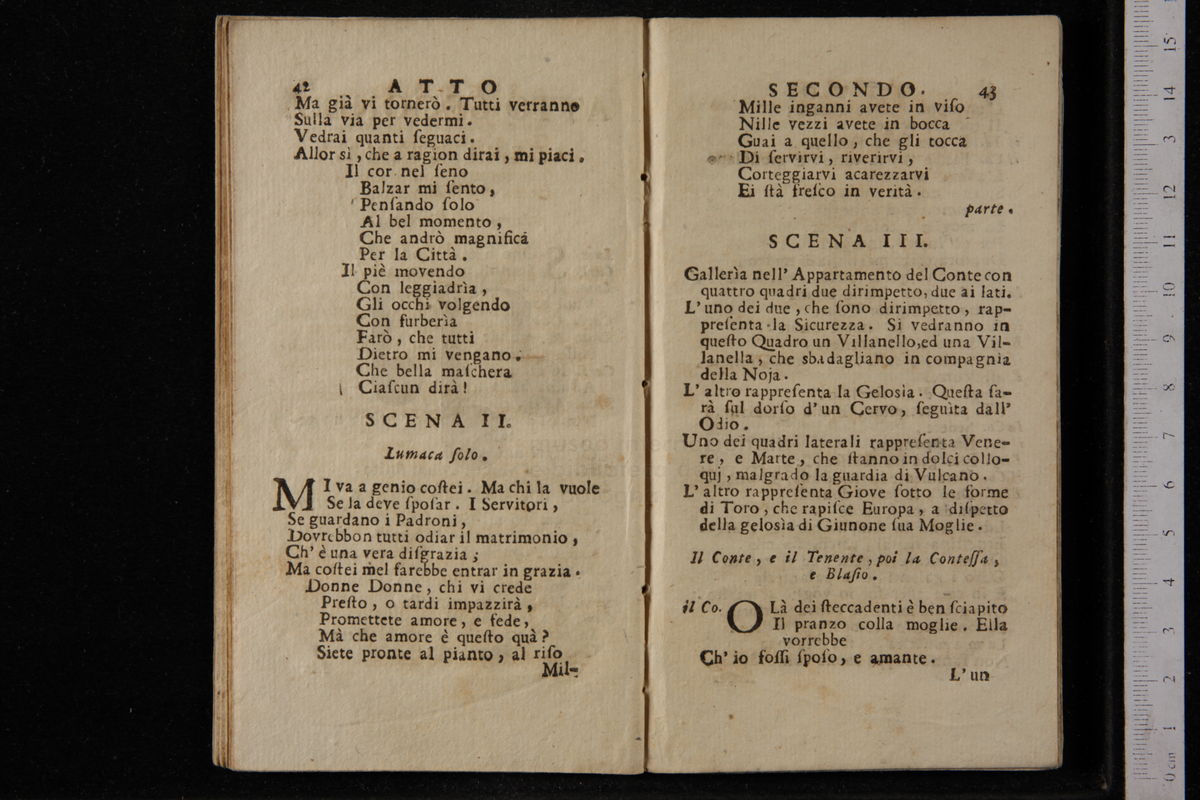 42 ATTO
Ma già vi tornerò. Tutti verranno
Sulla via per vedermi.
Vedrai quanti ſeguaci.
Allor sì, che a ragion dirai, mi piaci.
Il cor nel ſeno
Balzar mi ſento,
Penſando ſolo
Al bel momento,
Che andrò magnifica
Per la Città.
Il piè movendo
Con leggiadrìa,
Gli occhi volgendo
Con furberìa
Farò, che tutti
Dietro mi vengano.
Che bella maſchera
Ciaſcun dirà!
SCENA II.
Lumaca ſolo.
MIva a genio coſtei. Ma chi la vuole
Se la deve ſpoſar. I Servitori,
Se guardano i Padroni,
Dovrebbon tutti odiar il matrimonio,
Ch' è una vera diſgrazia;
Ma coſtei mel farebbe entrar in grazia.
Donne Donne, chi vi crede
Preſto, o tardi impazzirà,
Promettete amore, e fede,
Mà che amore è queſto quà?
Siete pronte al pianto, al riſo
Mil-
SECONDO. 43
Mille inganni avete in viſo
Nille vezzi avete in bocca
Guai a quello, che gli tocca
Di ſervirvi, riverirvi,
Corteggiarvi acarezzarvi
Ei ſtà freſco in verità.
parte.
SCENA III.
Gallerìa nell' Appartamento del Conte con
quattro quadri due dirimpetto, due ai lati.
L' uno dei due, che ſono dirimpetto, rap-
preſenta la Sicurezza. Si vedranno in
queſto Quadro un Villanello, ed una Vil-
lanella, che sbadagliano in compagnia
della Noja.
L' altro rappreſenta la Geloſia. Queſta ſa-
rà ſul dorſo d' un Cervo, ſeguìta dall'
Odio.
Uno dei quadri laterali rappreſenta Vene-
re, e Marte, che ſtanno in dolci collo-
quj, malgrado la guardia di Vulcano.
L' altro rappreſenta Giove ſotto le forme
di Toro, che rapiſce Europa, a diſpetto
della geloſìa di Giunone ſua Moglie.
Il Conte, e il Tenente, poi la Conteſſa,
e Blaſio.
il Co. OLà dei ſteccadenti è ben ſciapito
Il pranzo colla moglie. Ella
vorrebbe
Ch' io foſſi ſpoſo, e amante.
L' un
0 cm 1 2 3 4 5 6 7 8 9 10 11 12 13 14 15